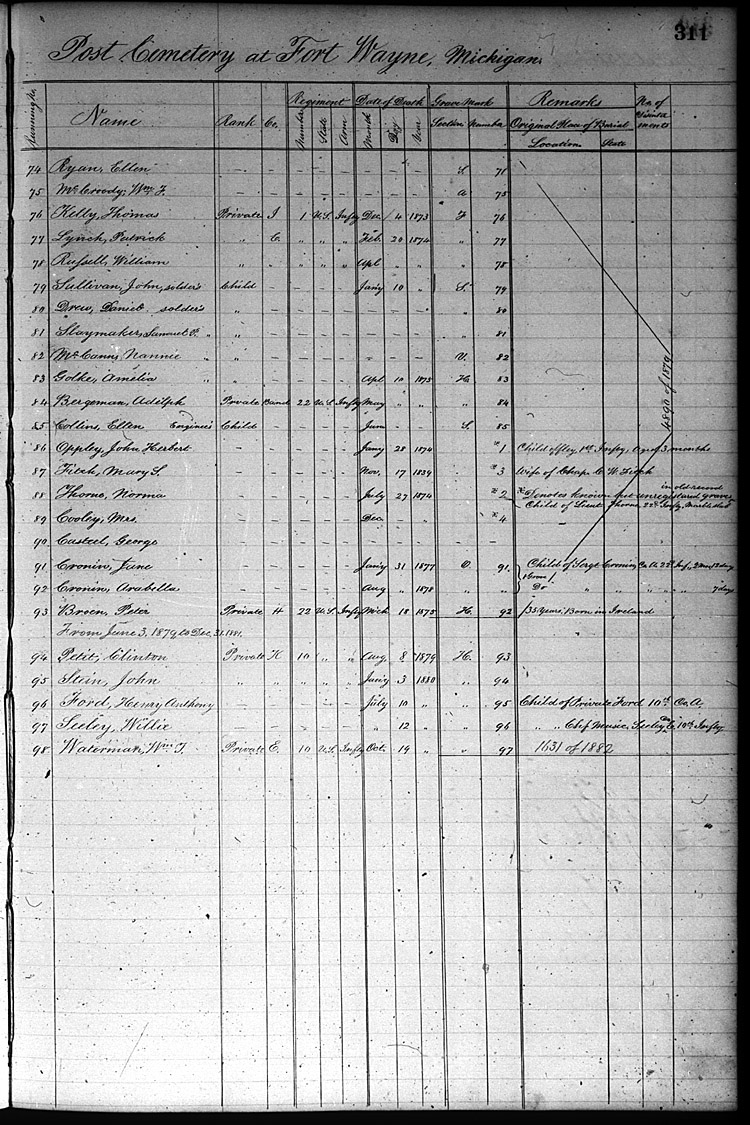 311
Post Cemetery at Fort Wayne, Michigan.
Running No. Name Rank Co. Regiment Date of Death Grave Mark Remarks No. of
Number State Arm Month Day Year Section Number Original Place of Burial
Location State
74 Ryan, Ellen – – – – – – – – S. 71
75 McCrody, Wm. F. – – – – – – – – A 75
76 Kelly, Thomas Private I 1 U.S. Infty Dec. 4 1873 F 76
77 Lynch, Patrick " C. " " " Feb. 20 1874 " 77
78 Russell, William " " " " " Apl – " " 78
79 Sullivan, John, soldier's Child – – – – Jany 10 " S. 79
80 Drew, Daniel, soldier's " – – – – – – – " 80
81 Slaymaker, Samuel P. " " – – – – – – – " 81
82 McCann, Nannie " " – – – – – – – U. 82
83 Golke, Amelia " " – – – – Apl 10 1875 H. 83
84 Bergeman, Adolph Private Band 22 U.S. Infty May " " " 84
85 Collins, Ellen Engineer's Child – – – – June – – S. 85
86 Oppley, John Herbert – – – – – Jany 28 1874 * 1 Child of 1st Infty, aged 3 months
87 Fitch, Mary S. – – – – – Nov. 17 1859 * 3 Wife of Chap. C. W. Fitch
88 Thorne, Norma – – – – – July 27 1874 * 2 * Denotes known but unregistered graves in old record
Child of Lieut Thorne, 22d Infty, Marble slab
89 Cooley, Mrs. – – – – – Dec. – " * 4 –
90 Casteel, George – – – – – – – –
91 Cronin, Jane – – – – – Jany 31 1877 O. 91 Child of Sergt Cronin, Co. A. 22d Inf.
92 Cronin, Arabella – – – – – Aug " 1878 " " Do " " " " 7 days
93 Broen, Peter Private H 22 U.S. Infty Mch 18 1875 H. 92 35 years, Born in Ireland
489a of 1879
From June 3, 1879, to Dec. 31, 1881.
94 Petit, Clinton Private K 10 " " Aug. 8 1879 H. 93
95 Stein, John " " " " " Jany 3 1880 " 94
96 Ford, Henry Anthony – – – – – July 10 " " 95 Child of Private Ford 10th Co. A.
97 Seeley, Willie – – – – – " 12 " " 96 " " Chf Music. Seeley Co. E. 10th Infty
98 Waterman, Wm. T. Private E. 10 U.S. Infty Oct. 19 " " 97 1631 of 1882